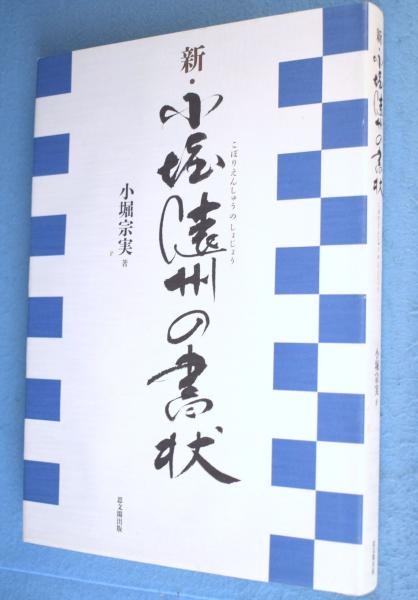 新・小堀遠州の書状
こぼりえんしゅうのしょじょう
小堀宗実 著
思文閣出版
新・小堀遠州の書状
小堀宗実 著
思文閣出版